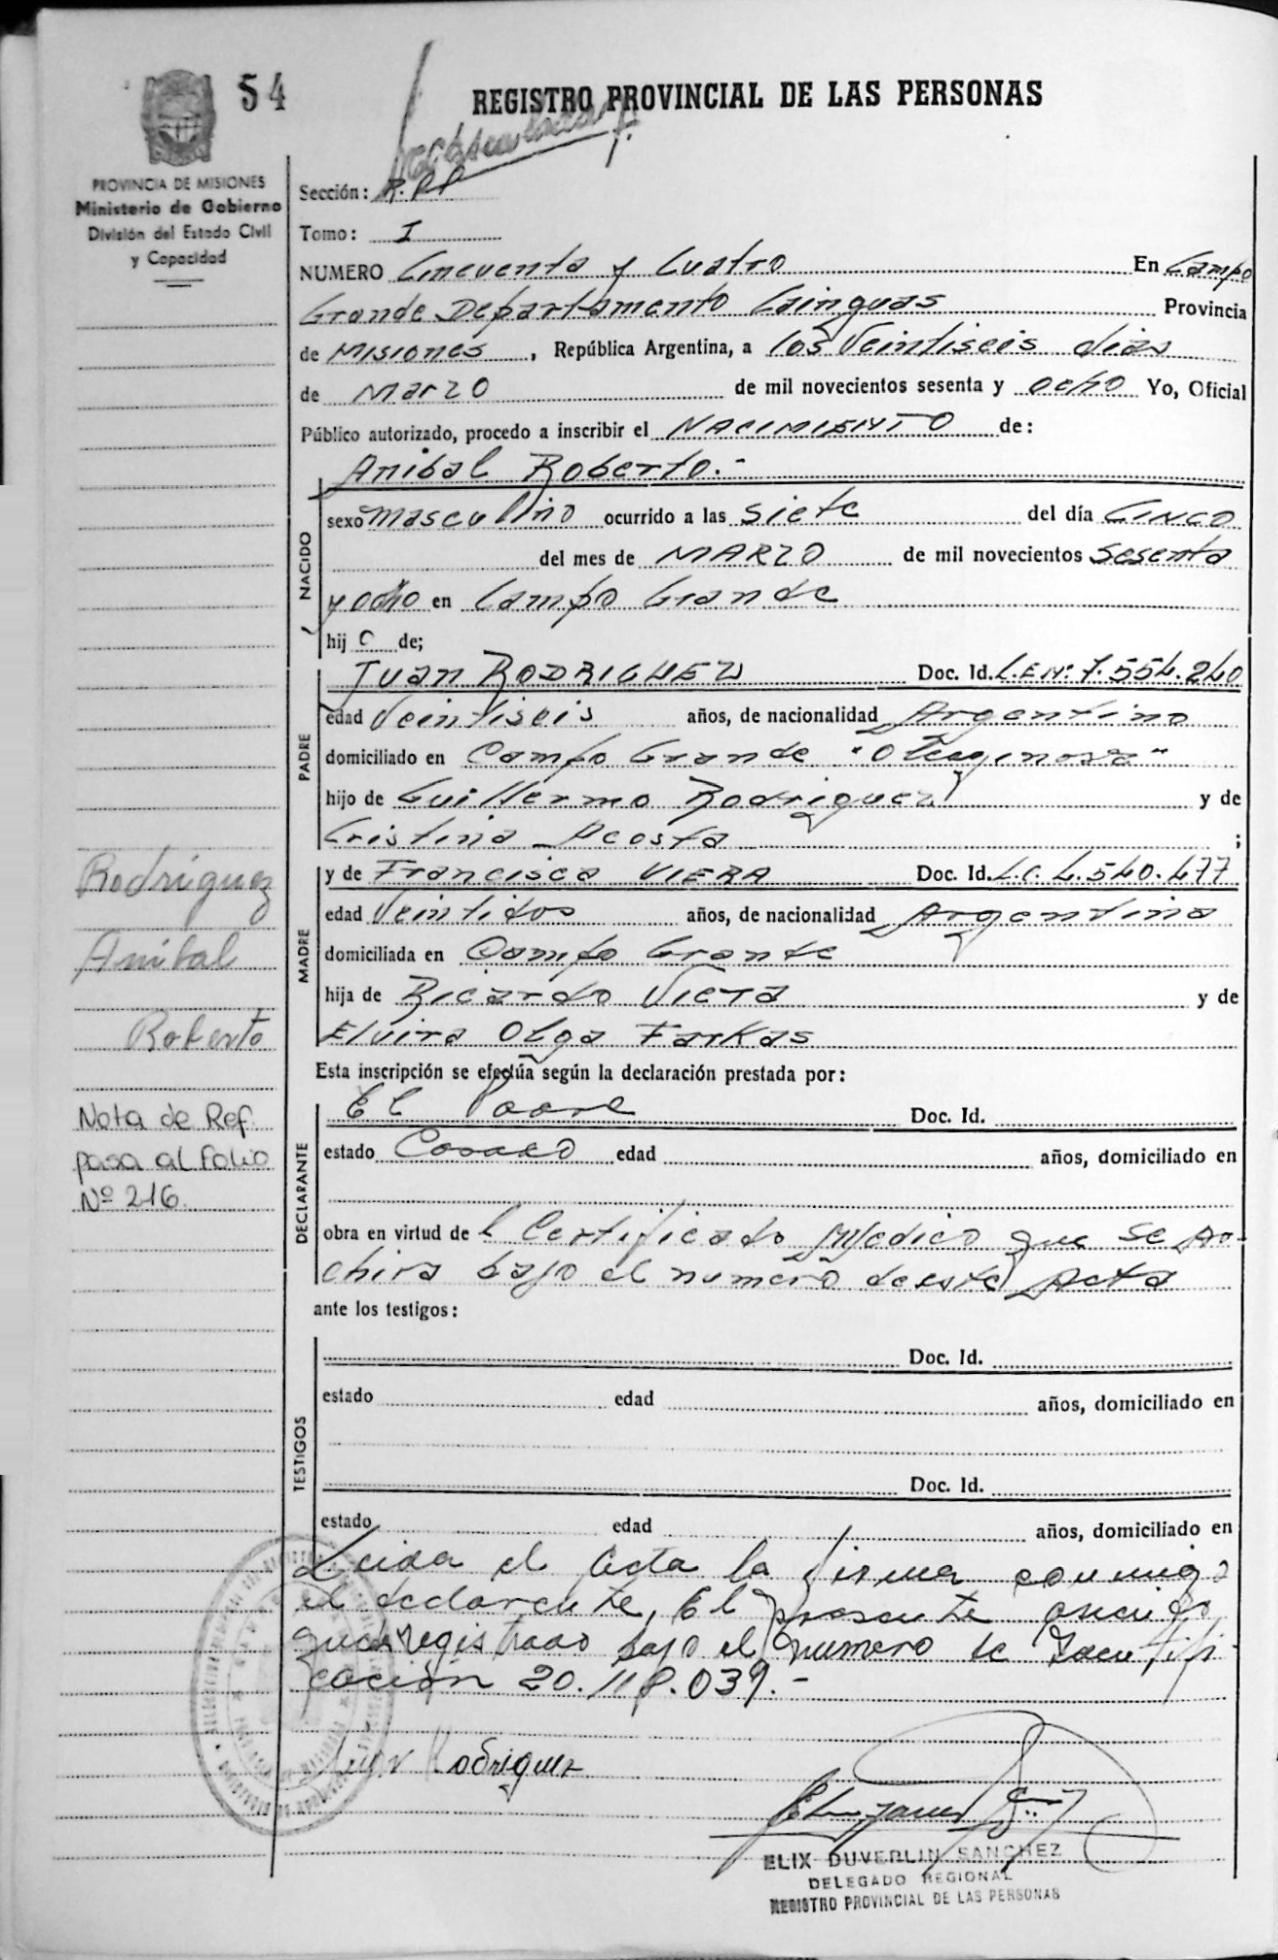 54
REGISTRO PROVINCIAL DE LAS PERSONAS
PROVINCIA DE MISIONES
Ministerio de Gobierno
División del Estado Civil
y Capacidad
Sección:
Tomo: I
NUMERO Cincuenta y Cuatro En Campo
Grande Departamento Cainguas Provincia
de Misiones, República Argentina, a los Veintiseis dias
de Marzo de mil novecientos sesenta y ocho Yo, Oficial
Público autorizado, procedo a inscribir el NACIMIENTO de:
Anibal Roberto.-
NACIDO
sexo masculino ocurrido a las siete del día CINCO
del mes de MARZO de mil novecientos sesenta
y ocho en Campo Grande
hijo de;
PADRE
Juan RODRIGUEZ Doc. Id. L.E.Nº 7.554.240
edad Veintiseis años, de nacionalidad Argentino
domiciliado en Campo Grande "Oleaginosa"
hijo de Guillermo Rodriguez y de
Cristina Acosta ;
MADRE
y de Francisca VIERA Doc. Id. L.C. 4.540.477
edad Veintidos años, de nacionalidad Argentina
domiciliada en Campo Grande
hija de Ricardo Viera y de
Elvira Olga Farkas
Esta inscripción se efectúa según la declaración prestada por:
DECLARANTE
El Padre Doc. Id.
estado Casado edad años, domiciliado en
obra en virtud de l Certificado Medico que se Ar-
chiva bajo el numero de este Acta
ante los testigos:
TESTIGOS
Doc. Id.
estado edad años, domiciliado en
Doc. Id.
estado edad años, domiciliado en
Leida el Acta la firma conmigo
el declarante, El presente
queda registrado bajo el numero de Identifi-
cación 20.118.039.-
Juan Rodriguez
ELIX DUVERLIN SANCHEZ
DELEGADO REGIONAL
REGISTRO PROVINCIAL DE LAS PERSONAS
Rodriguez
Anibal
Roberto
Nota de Ref.
pasa al Folio
Nº 216.